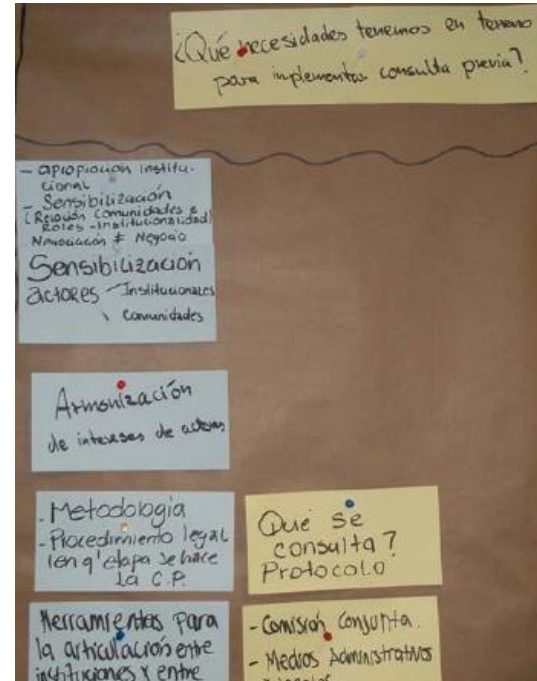 ¿Qué necesidades tenemos en terreno
para implementar consulta previa?
- apropiación institu-
cional
- Sensibilización
(Relación Comunidades e
Roles - institucionalidad)
Negociación ≠ Negocio
Sensibilización
actores - Institucionales
\ Comunidades
Armonización
de intereses de actores
- Metodologia
- Procedimiento legal
(en q' etapa se hace
la C.P.
Qué se
consulta?
Protocolo
Herramientas para
la articulación entre
instituciones y entre
- Comisión Conjunta.
- Medios Administrativos